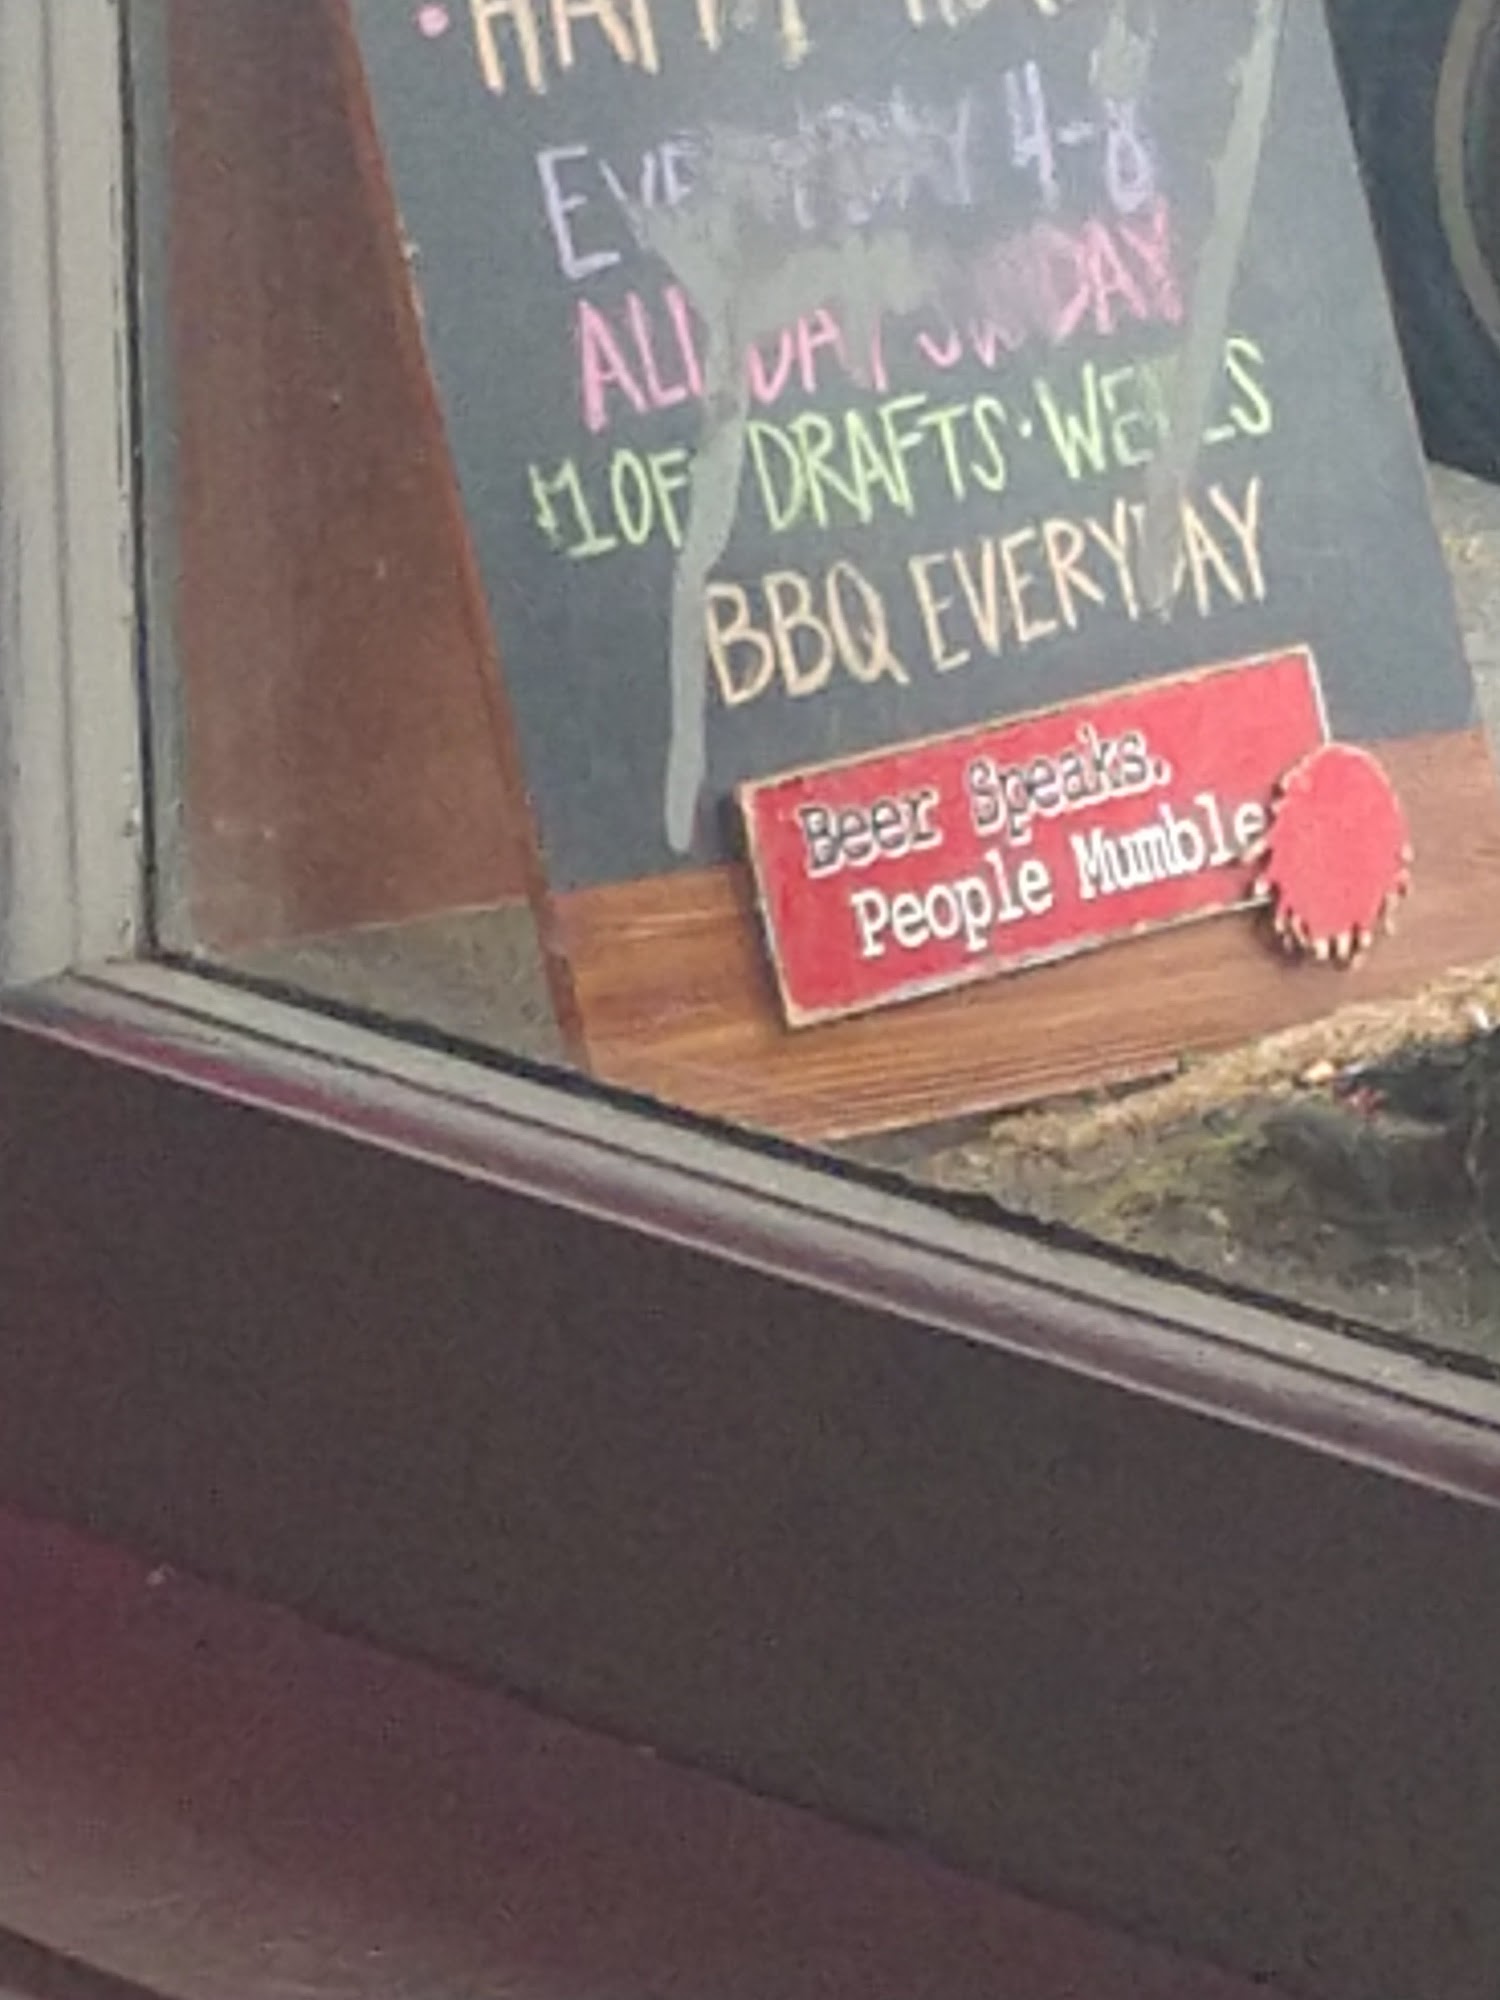 • HAPPY HOUR
EVERYDAY 4-8
ALL DAY SUNDAY
$1 OFF DRAFTS • WELLS
BBQ EVERYDAY
Beer Speaks.
People Mumble